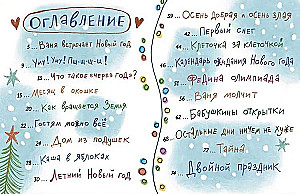 ОГЛАВЛЕНИЕ
5... Ваня встречает Новый год
9... Уну! Уну! Пи-и-и-и!
13... Что такое «через год»?
15... Месяц в окошке
20... Как вращается Земля
22... Гостям можно всё
24... Дом из подушек
28... Каша в яблоках
30... Летний Новый год
39... Осень добрая и осень злая
42... Первый снег
44... Клеточка за клеточкой
46... Календарь ожидания Нового года
52... Федина олимпиада
56... Ваня молчит
62... Бабушкины открытки
68... Остальные дни ничем не хуже
72... Тайна
Двойной праздник